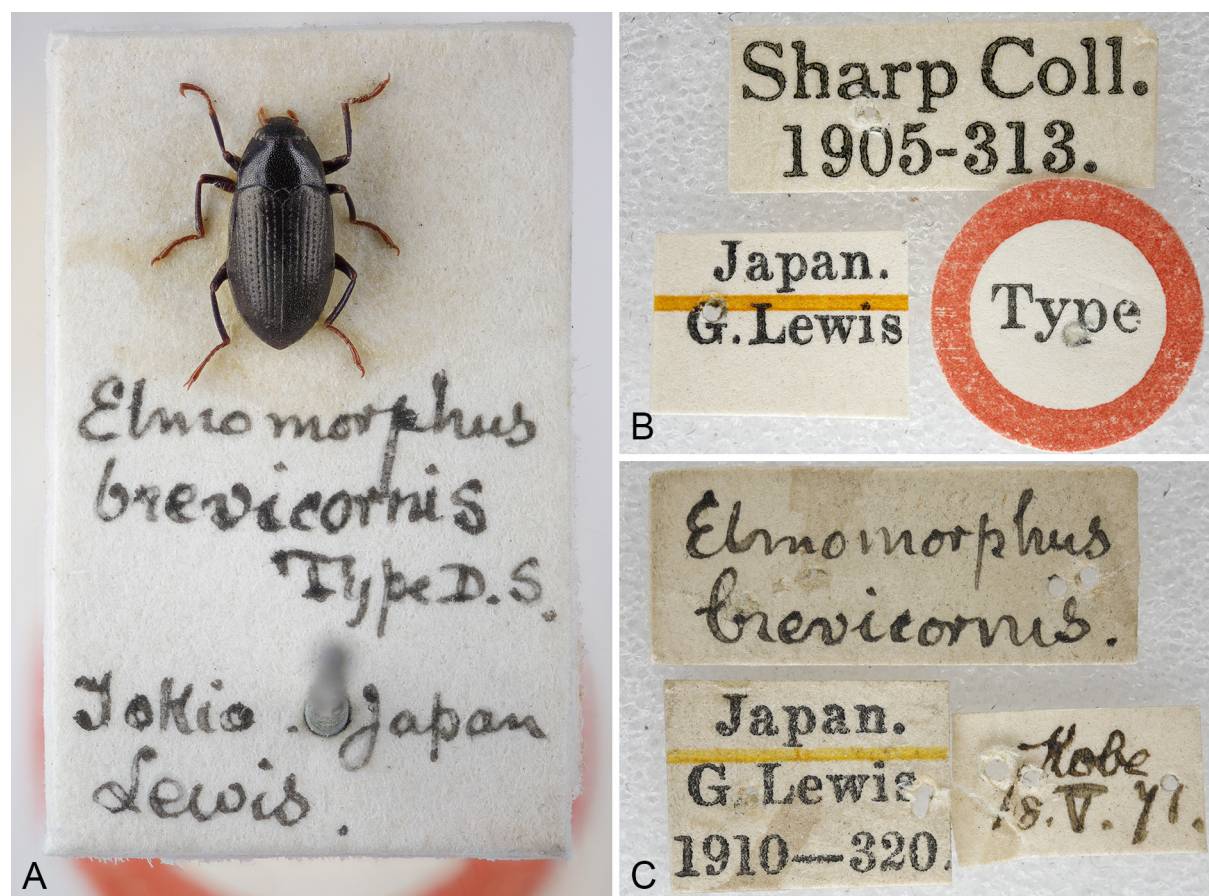 Elmomorphus
brevicornis
Type D. S.
Tokio . Japan
Lewis.
A
Sharp Coll.
1905-313.
Japan.
G. Lewis
Type
B
Elmomorphus
brevicornis.
Japan.
G. Lewis
1910—320.
Kobe
18.V.71.
C